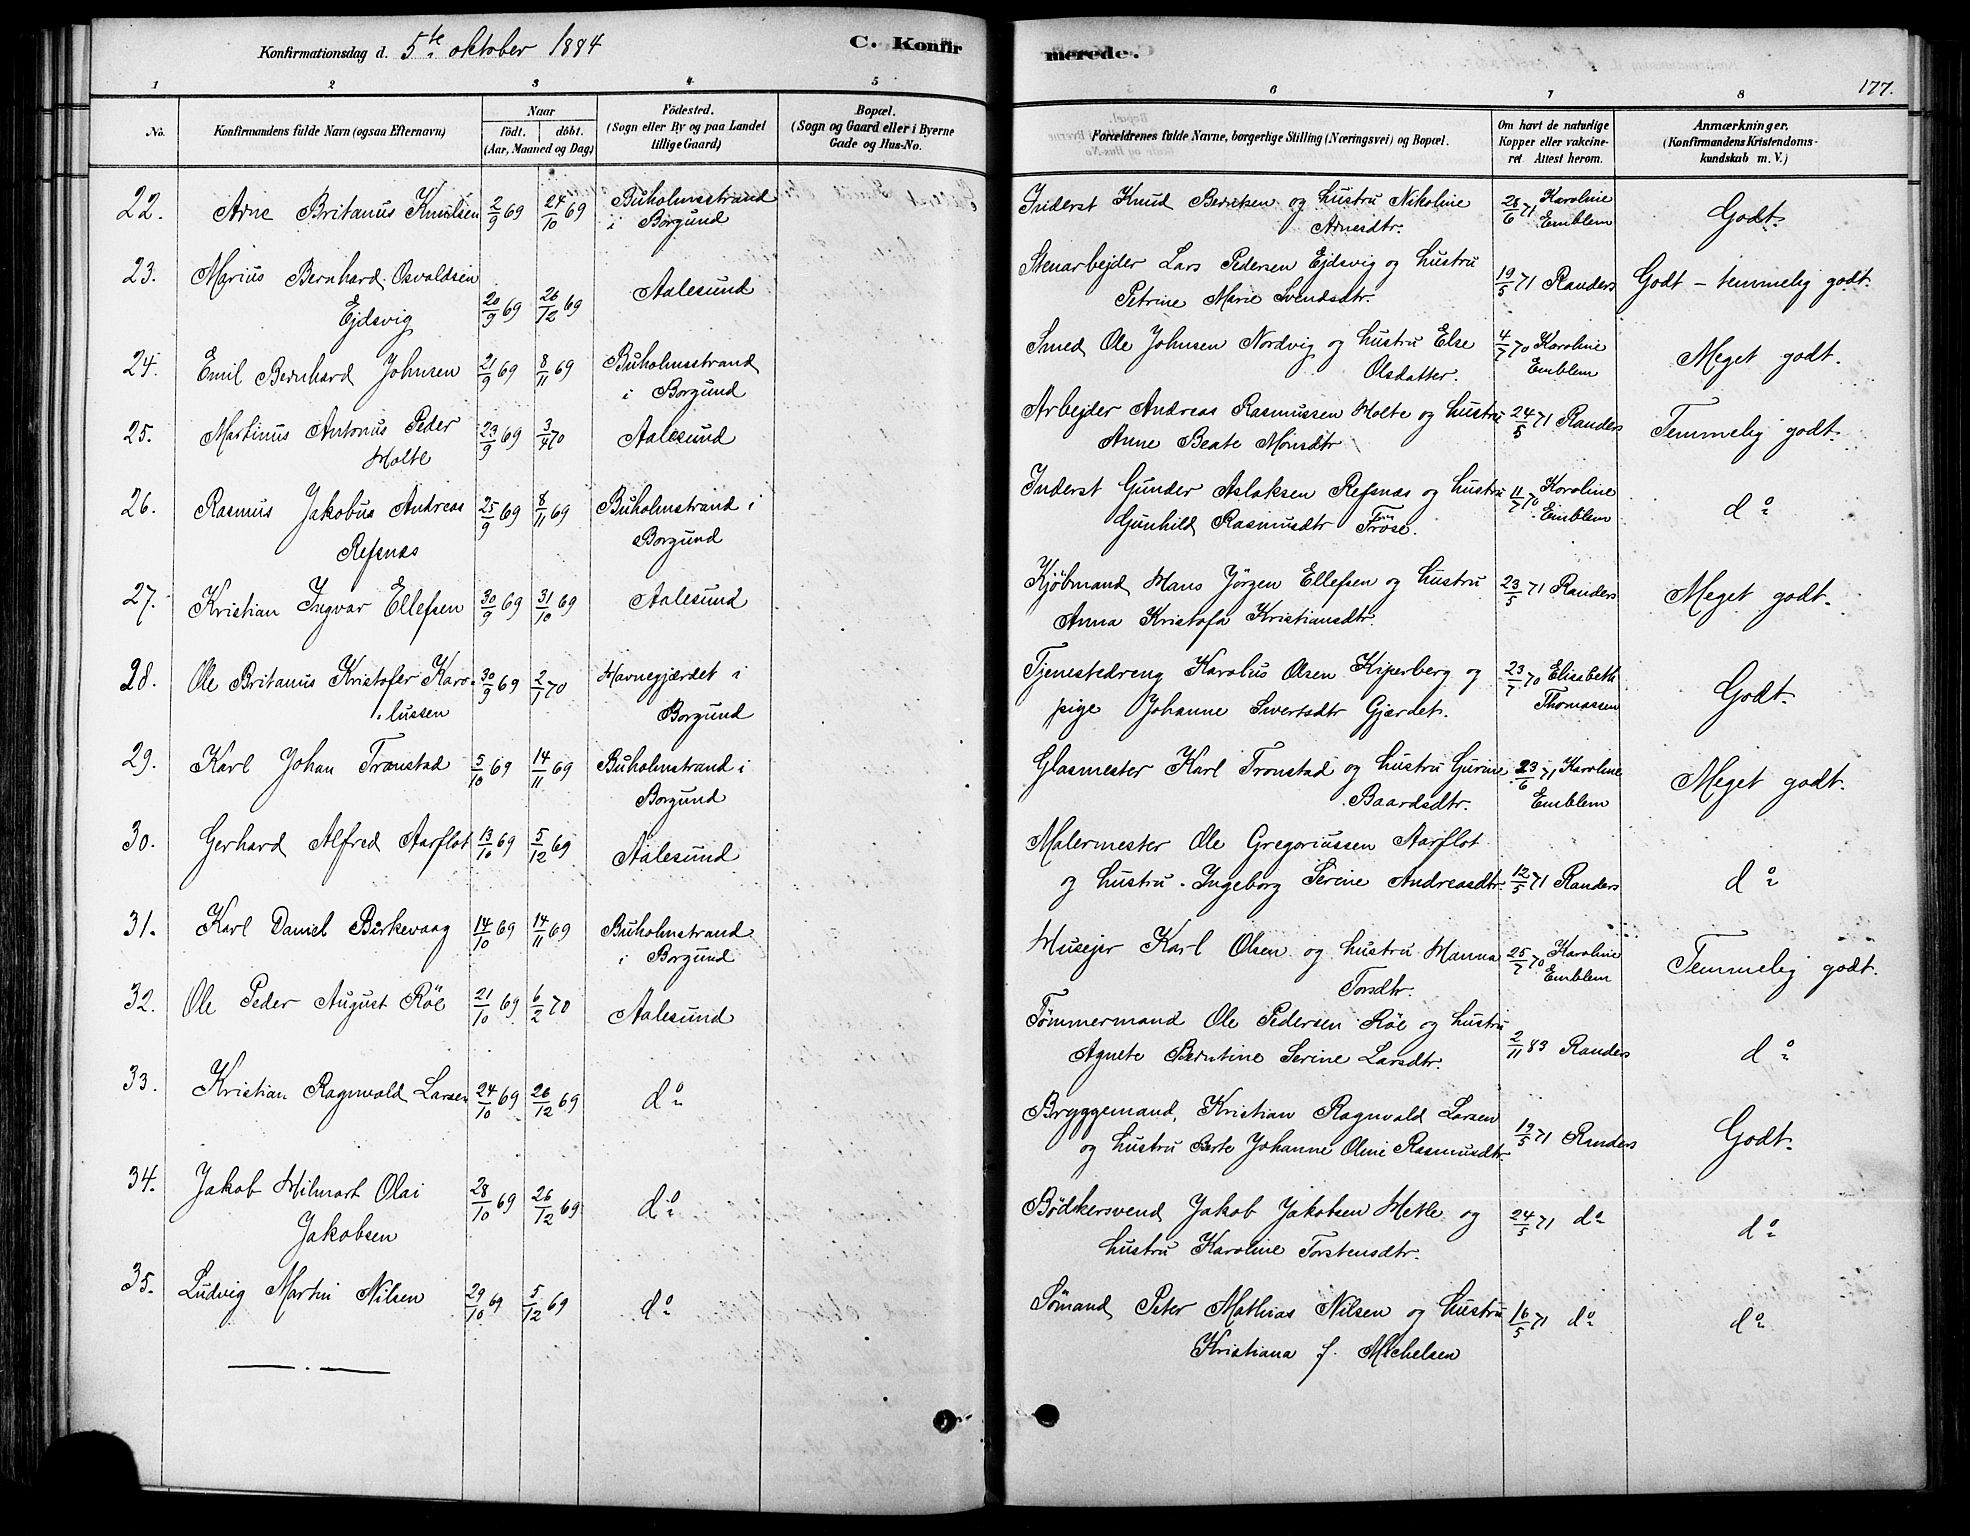 Konfirmationsdag d. 5te oktober 1884
C. Konfirmerede.
177.
1 2 3 4 5 6 7 8
No. Konfirmandens fulde Navn (ogsaa Efternavn) Naar födt. döbt. (Aar, Maaned og Dag) Födested. (Sogn eller By og paa Landet tillige Gaard) Bopæl. (Sogn og Gaard eller i Byerne Gade og Hus-No. Forældrenes fulde Navne, borgerlige Stilling (Næringsvei) og Bopæl. Om havt de naturlige Kopper eller vakcineret. Attest herom. Anmærkninger. (Konfirmandens Kristendomskundskab m. V.)
22. Arne Britanus Knudsen 2/9 69 24/10 69 Buholmsstrand Inderst Knud Berntsen og hustru Nikoline 28/6 71 Karoline Godt.
i Borgund Arnesdtr. Emblem
23. Marius Bernhard Osvaldsen 20/9 69 26/12 69 Aalesund Stenarbejder Lars Pedersen Ejdsvig og hustru 19/5 71 Randers Godt - temmelig godt.
Ejdsvig Petrine Marie Svendsdtr.
24. Emil Bernhard Johnsen 21/9 69 8/11 69 Buholmsstrand Smed Ole Johnsen Nordvig og hustru Else 4/7 70 Karoline Meget godt.
i Borgund Olsdatter. Emblem
25. Martinus Antonus Peder 23/9 69 3/4 70 Aalesund Arbejder Andreas Rasmussen Holte og hustru 24/5 71 Randers Temmelig godt.
Holte Anne Beate Monsdtr
26. Rasmus Jakobus Andreas 25/9 69 8/11 69 Buholmstrand i Inderst Gunder Aslaksen Refsnæs og hustru 11/7 70 Karoline do
Refsnæs Borgund Gunhild Rasmusdtr Fröse. Emblem
27. Kristian Ingvar Ellefsen 30/9 69 31/10 69 Aalesund Kjöbmand Hans Jörgen Ellefsen og hustru 23/5 71 Randers Meget godt.
Anna Kristofa Kristiansdtr.
28. Ole Britanus Kristofer Karo- 30/9 69 2/1 70 Havnegjærdet i Tjenestedreng Karolus Olsen Kiperberg og 23/7 70 Elisabeth Godt.
lussen Borgund pige Johanne Sivertsdtr Gjærdet. Thomassen
29. Karl Johan Tronstad 5/10 69 14/11 69 Buholmstrand i Glasmester Karl Tronstad og hustru Gurine 23/6 71 Karoline Meget godt.
Borgund Baardsdtr. Emblem
30. Gerhard Alfred Aarflot 13/10 69 5/12 69 Aalesund Malermester Ole Gregoriussen Aarflot
og hustru Ingeborg Serine Andreasdtr. 12/5 71 Randers do
31. Karl Daniel Birkevaag 14/10 69 14/11 69 Buholmstrand Husejer Karl Olsen og hustru Hanna 25/7 70 Karoline Temmelig godt.
i Borgund Torsdtr. Emblem
32. Ole Peder August Röe 21/10 69 6/2 70 Aalesund Tömmermand Ole Pedersen Röe og hustru 2/11 83 Randers do
Agnete Berntine Serine Larsdtr.
33. Kristian Ragnvald Larsen 24/10 69 26/12 69 do Bryggemand Kristian Ragnvald Larsen 19/5 71 Randers Godt.
og hustru Berte Johanne Oline Rasmusdtr.
34. Jakob Hilmart Olai 28/10 69 26/12 69 do Bödkersvend Jakob Jakobsen Hetle og 24/5 71 do do
Jakobsen hustru Karoline Torstensdtr.
35. Ludvig Martin Nilsen 29/10 69 5/12 69 do Sömand Peter Mathias Nilsen og hustru 16/5 71 do do
Kristiana f. Michelsen